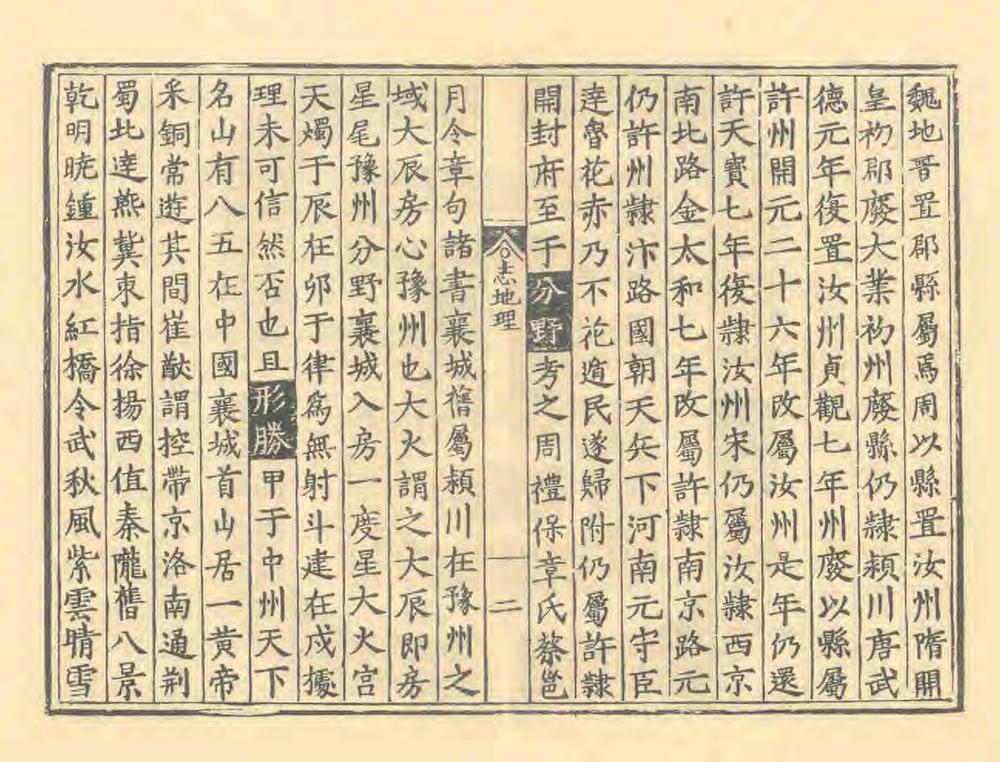 魏地晋置郡縣屬焉周以縣置汝州隋開
皇初郡廢大業初州廢縣仍隷潁川唐武
德元年復置汝州貞觀七年州廢以縣屬
許州開元二十六年改屬汝州是年仍還
許天寳七年復隷汝州宋仍屬汝隷西京
南北路金太和七年改屬許隷南京路元
仍許州隷汴路國朝天兵下河南元守臣
逹魯花赤乃不花遁民遂歸附仍屬許隷
開封府至于分野考之周禮保章氏蔡邕
志地理
二
月令章句諸書襄城舊屬潁川在豫州之
域大辰房心豫州也大火謂之大辰即房
星尾豫州分野襄城入房一度星大火宫
天燭于辰在卯于律爲無射斗建在戍㩀
理未可信然否也且形勝甲于中州天下
名山有八五在中國襄城首山居一黄帝
釆銅常遊其間崔猷謂控帶京洛南通荆
蜀北逹燕冀東指徐揚西值秦隴舊八景
乾明暁鍾汝水紅橋令武秋風紫雲晴雪